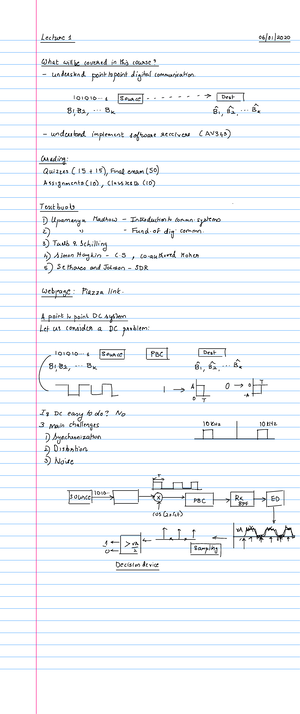 Lecture 1 06/01/2020
What will be covered in this course?
- understand point to point digital communication.
101010... Source Dest
B1, B2, ... Bk B̂1, B̂2, ... B̂k
- understand implement software receivers (AV343)
Grading:
Quizzes (15 + 15), Final exam (50)
Assignments (10), Class (10)
Textbooks
1) Upamanyu Madhow - Introduction to comm. systems
2) " - Fund. of dig. comm.
3) Taub & Schilling
4) Simon Haykin - C.S, co-authored Moher
5) Sethares and Johnson - SDR
Webpage: Piazza link.
A point to point DC system
Let us consider a DC problem:
101010... Source PBC Dest
B1, B2, ... Bk B̂1, B̂2, ... B̂k
1 → A 0 T 0 → 0 T -A
Is DC easy to do? No
3 main challenges 10 KHz 10 KHz
1) Synchronization
2) Distortion
3) Noise
T
Source 1010... X PBC Rx BPF ED
cos (2πfct)
1 0 > VA/2 Sampling VA
Decision device